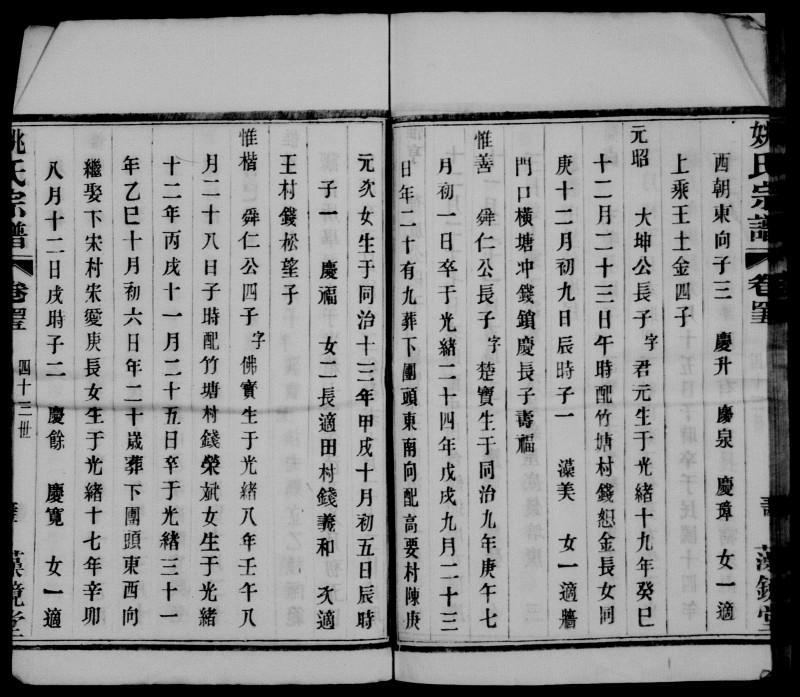 姚氏宗譜 卷四十五
西朝東向子三 慶升 慶泉 慶璋 女一適
上乘王土金四子
元昭 大坤公長子字君元生于光緒十九年癸巳
十二月二十三日午時配竹塘村錢恕金長女同
庚十二月初九日辰時子一 藻美 女一適牆
門口橫塘冲錢鎖慶長子壽福
惟善 舜仁公長子字楚寶生于同治九年庚午七
月初一日卒于光緒二十四年戊戌九月二十三
日年二十有九葬下團頭東南向配高要村陳庚
元次女生于同治十三年甲戌十月初五日辰時
子一 慶福 女二長適田村錢義和 次適
王村錢松茔子
惟楷 舜仁公四子字佛寶生于光緒八年壬午八
月二十八日子時配竹塘村錢榮斌女生于光緒
十二年丙戌十一月二十五日卒于光緒三十一
年乙巳十月初六日年二十歲葬下團頭東西向
繼娶下宋村宋愛庚長女生于光緒十七年辛卯
八月十二日戌時子二 慶餘 慶寬 女一適
姚氏宗譜 四十三世 藻鏡堂